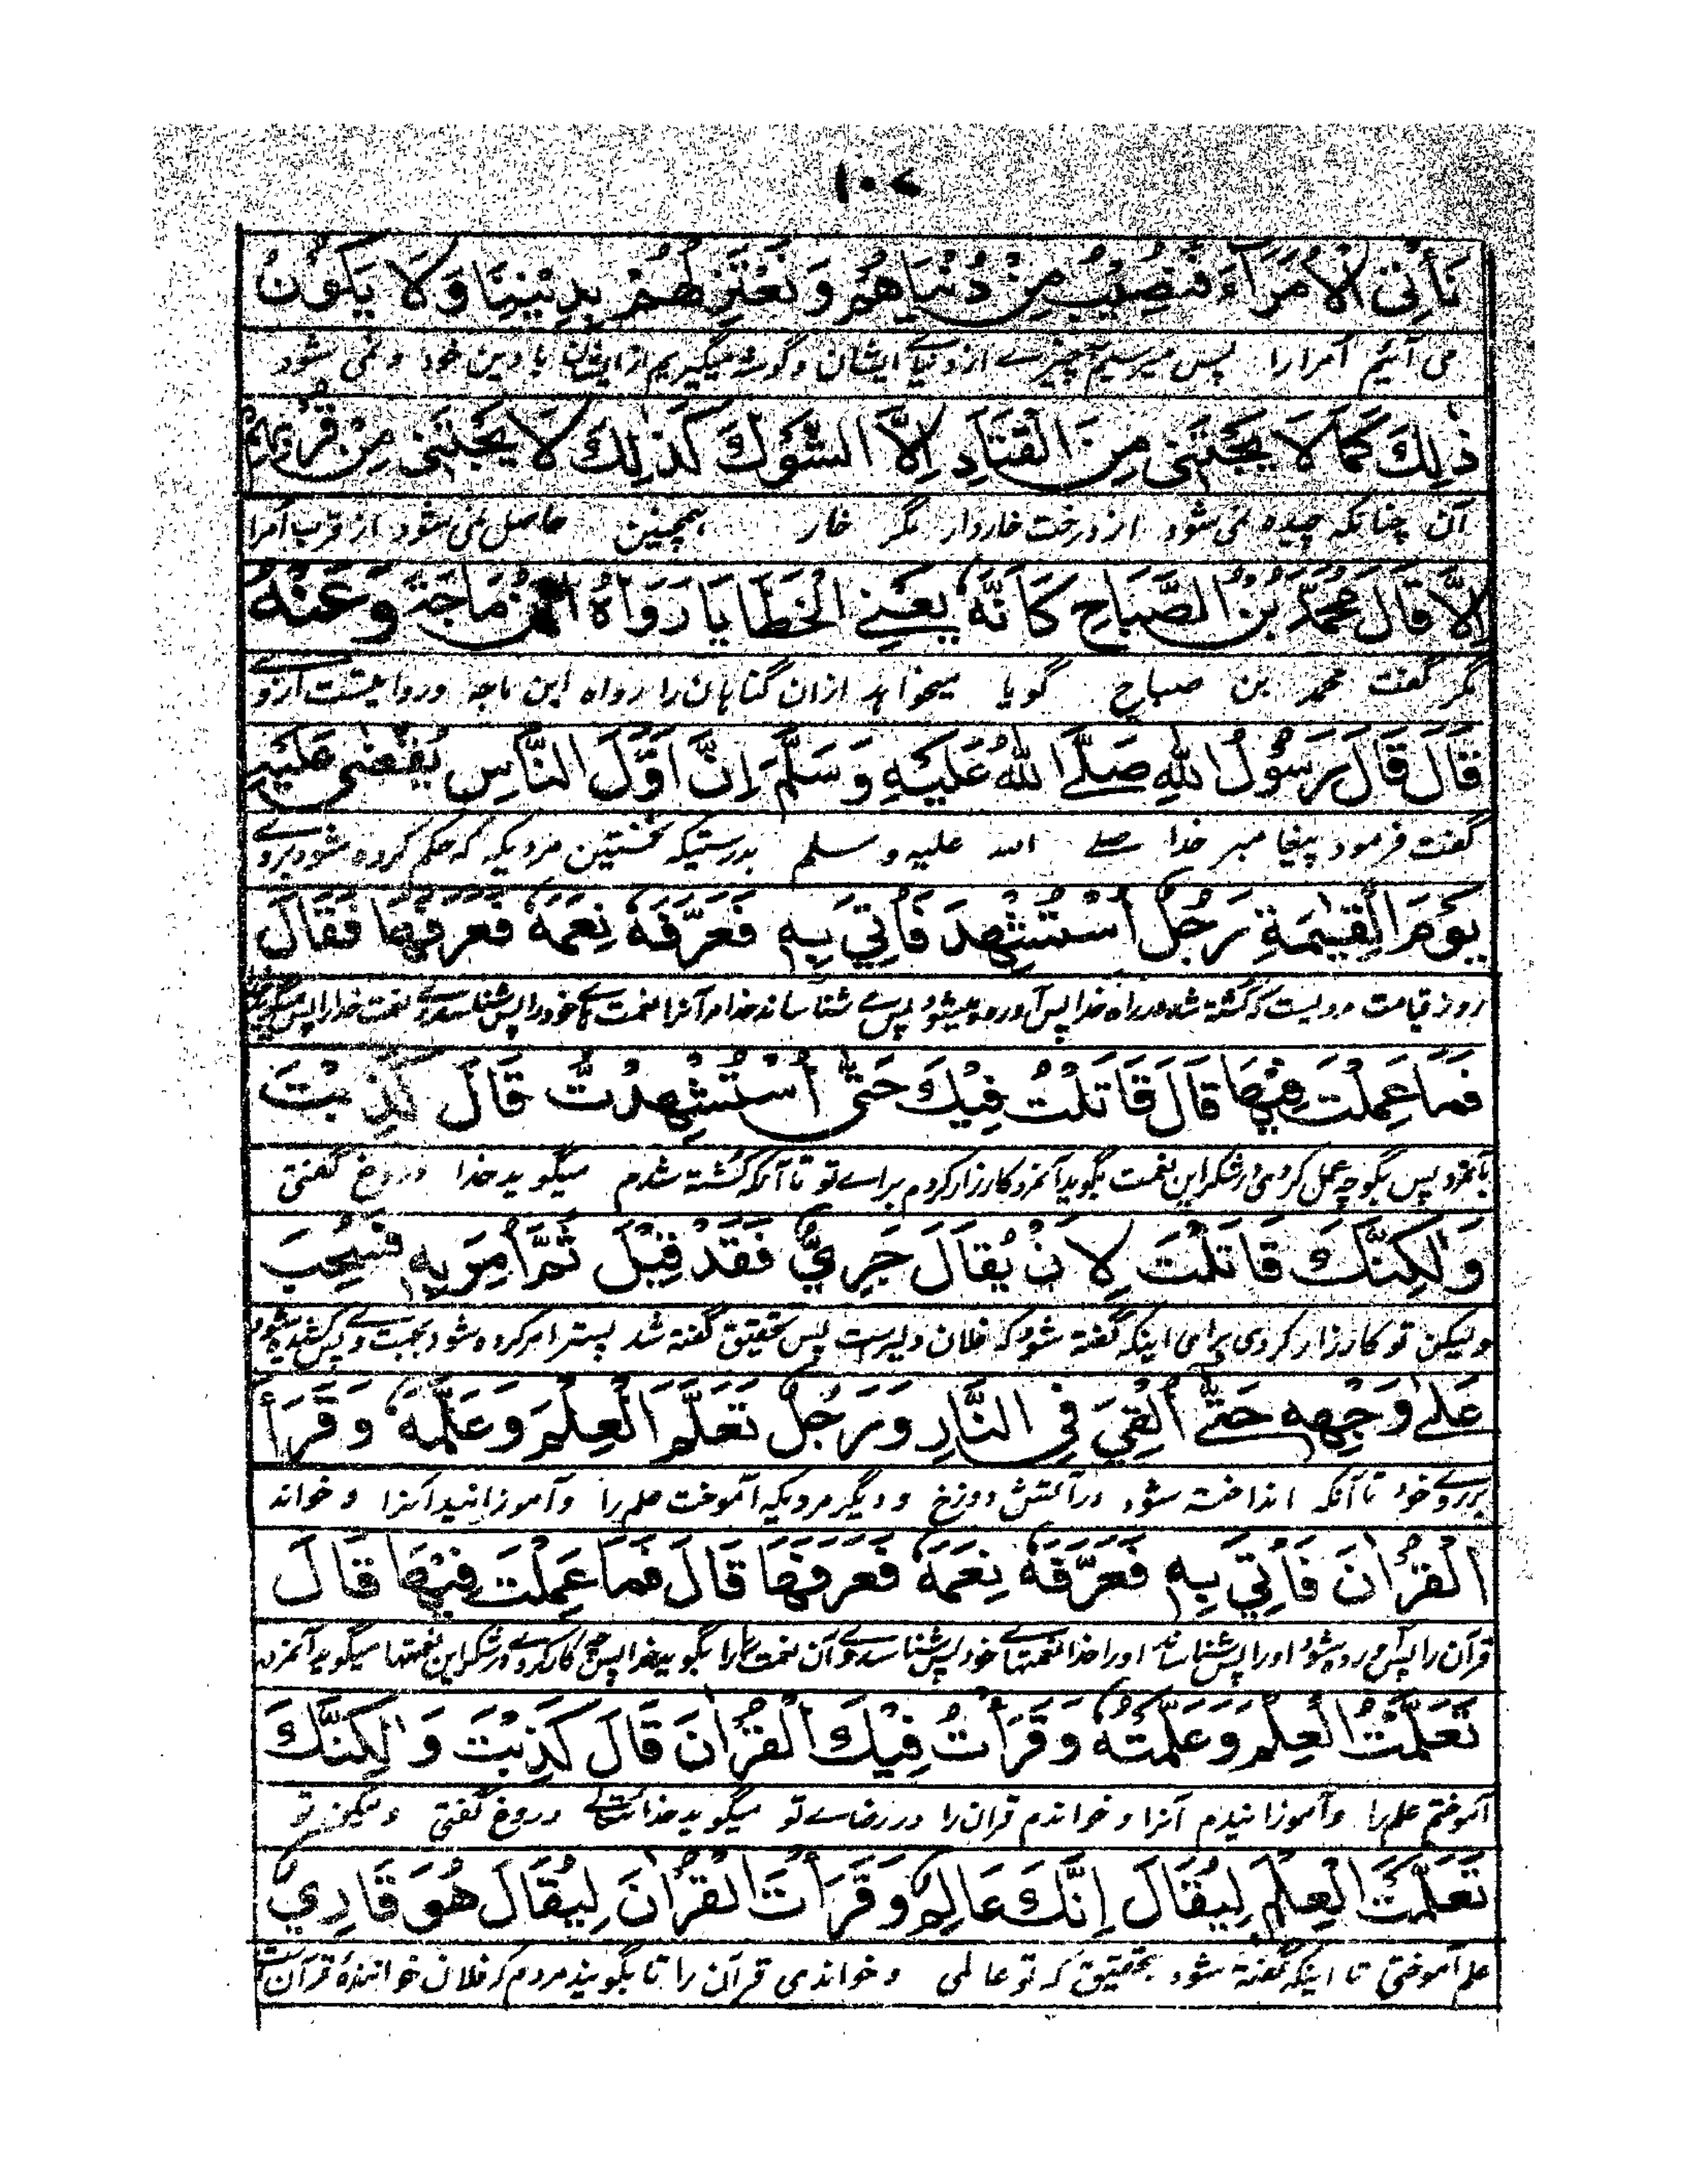 ۱۰۷
نَأْتِى الْاُمَرَآءَ فَنُصِيْبُ مِنْ دُنْيَاهُمْ وَنَعْتَزِلُهُمْ بِدِيْنِنَا وَلَا يَكُوْنُ
مى آئيم امرا را پس ميرسيم چيزے از دنياے ايشان و گوشه ميگيريم از ايشان با دين خود و نمى شود
ذٰلِكَ كَمَا لَا يُجْتَنٰى مِنَ الْقَتَادِ اِلَّا الشَّوْكُ كَذٰلِكَ لَا يُجْتَنٰى مِنْ قُرْبِهِمْ
آن چنانكه چيده نمى شود از درخت خاردار مگر خار همچنين حاصل نمى شود از قرب امرا
اِلَّا قَالَ مُحَمَّدُ بْنُ الصَّبَّاحِ كَاَنَّهٗ يَعْنِے الْخَطَايَا رَوَاهُ ابْنُ مَاجَةَ وَعَنْهُ
مگر گفت محمد بن صباح گويا ميخواهد ازان گناهان را رواه ابن ماجه و روايتست از وے
قَالَ قَالَ رَسُوْلُ اللّٰهِ صَلَّے اللّٰهُ عَلَيْهِ وَسَلَّمَ اِنَّ اَوَّلَ النَّاسِ يُقْضٰى عَلَيْهِ
گفت فرمود پيغامبر خدا صلے الله عليه و سلم بدرستيكه نخستين مرديكه كه حكم كرده شود بروے
يَوْمَ الْقِيٰمَةِ رَجُلٌ اُسْتُشْهِدَ فَاُتِيَ بِهٖ فَعَرَّفَهٗ نِعَمَهٗ فَعَرَفَهَا فَقَالَ
روز قيامت مرديست كه كشته شد در راه خدا پس آورده ميشود پس شناساند خدا مر آنرا نعمت هاے خود را پس شناسد نعمت خدا را پس ميگويد
فَمَا عَمِلْتَ فِيْهَا قَالَ قَاتَلْتُ فِيْكَ حَتّٰى اُسْتُشْهِدْتُّ قَالَ كَذِبْتَ
بآنمرد پس بگو چه عمل كردى در شكر اين نعمت بگويد آنمرد كارزار كردم براے تو تا آنكه كشته شدم ميگويد خدا دروغ گفتى
وَلٰكِنَّكَ قَاتَلْتَ لِاَنْ يُقَالَ جَرِيٌّ فَقَدْ قِيْلَ ثُمَّ اُمِرَ بِهٖ فَسُحِبَ
وليكن تو كارزار كردى براى اينكه گفته شود كه فلان دليرست پس تحقيق گفته شد پستر امر كرده شود بجهت وے پس كشيده شود
عَلٰے وَجْهِهٖ حَتّٰے اُلْقِيَ فِى النَّارِ وَرَجُلٌ تَعَلَّمَ الْعِلْمَ وَعَلَّمَهٗ وَقَرَأَ
بر روے خود تا آنكه انداخته شود در آتش دوزخ و ديگر مرديكه آموخت علم را و آموزانيد آنرا و خواند
الْقُرْاٰنَ فَاُتِيَ بِهٖ فَعَرَّفَهٗ نِعَمَهٗ فَعَرَفَهَا قَالَ فَمَا عَمِلْتَ فِيْهَا قَالَ
قرآن را پس آورده شود او را پس شناساند او را خدا نعمتهاے خود پس شناسد وے آن نعمت ها را بگويد خدا پس چه كار كردے در شكر اين نعمتها ميگويد آنمرد
تَعَلَّمْتُ الْعِلْمَ وَعَلَّمْتُهٗ وَقَرَأْتُ فِيْكَ الْقُرْاٰنَ قَالَ كَذِبْتَ وَلٰكِنَّكَ
آموختم علم را و آموزانيدم آنرا و خواندم قرآن را در رضاے تو ميگويد خدا تعالے دروغ گفتى وليكن تو
تَعَلَّمْتَ الْعِلْمَ لِيُقَالَ اِنَّكَ عَالِمٌ وَقَرَأْتَ الْقُرْاٰنَ لِيُقَالَ هُوَ قَارِيٌ
علم آموختى تا اينكه گفته شود بتحقيق كه تو عالمى و خواندى قرآن را تا بگويند مردم كه فلان خوانندهٔ قرآن ست